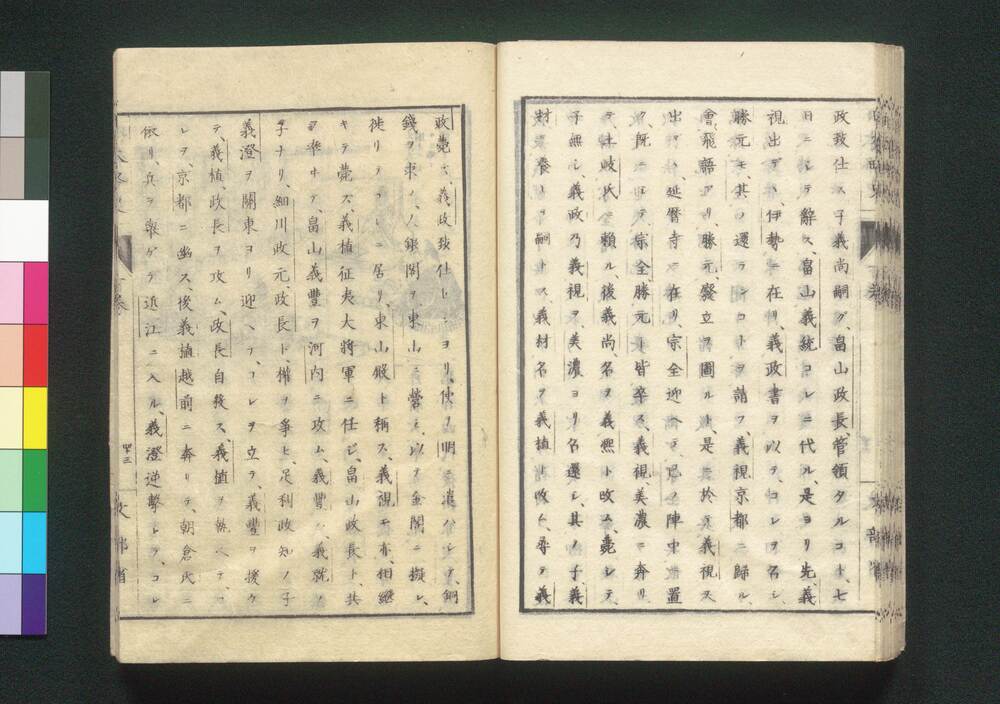 政致仕ス子義尚嗣グ、畠山政長、管領タルコト、七
日ニシテ辭ス、畠山義統コレニ代ル、是ヨリ先、義
視出デヽ、伊勢ニ在リ、義政書ヲ以テ、コレヲ召シ、
勝元モ、其ノ還ランコトヲ請フ、義視京都ニ歸ル、
會飛語アリ、勝元廢立ヲ圖ルト、是ニ於テ義視
出デヽ、延曆寺ニ在リ、宗全迎ヘテ、己ノ陣中ニ置
ク、既ニシテ、宗全、勝元ト皆卒ス、義視、美濃ニ奔リ
テ、土岐氏ニ賴ル、後義尚名ヲ義熙ト改ム、薨シテ、
子無シ、義政乃義視ヲ、美濃ヨリ召還シ、其ノ子、義
材ヲ養ヒテ嗣トス、義材名ヲ義植ト改ム、尋テ義
政薨ス、義政致仕セシヨリ、使ヲ明ニ遣ハシテ、銅
錢ヲ求メ、又銀閣ヲ東山ニ營ミ、以テ金閣ニ擬シ、
徙リテコレニ居リ、東山殿ト稱ス、義視モ亦、相繼
キテ薨ズ、義植征夷大將軍ニ任ジ、畠山政長ト、共
ヲ率ヰテ、畠山義豐ヲ河内ニ攻ム、義豐ハ、義就ノ
子ナリ、細川政元、政長ト、權ヲ爭ヒ、足利政知ノ子
義澄ヲ關東ヨリ迎ヘテ、コレヲ立テ、義豐ヲ援ケ
テ、義植、政長ヲ攻ム、政長自殺ス、義植ヲ執ヘテ、
レヲ、京都ニ幽ス、後義植越前ニ奔リテ、朝倉氏ニ
依リ、兵ヲ擧ゲテ近江ニ入ル、義澄逆擊シテ、コレ
卷
文部省